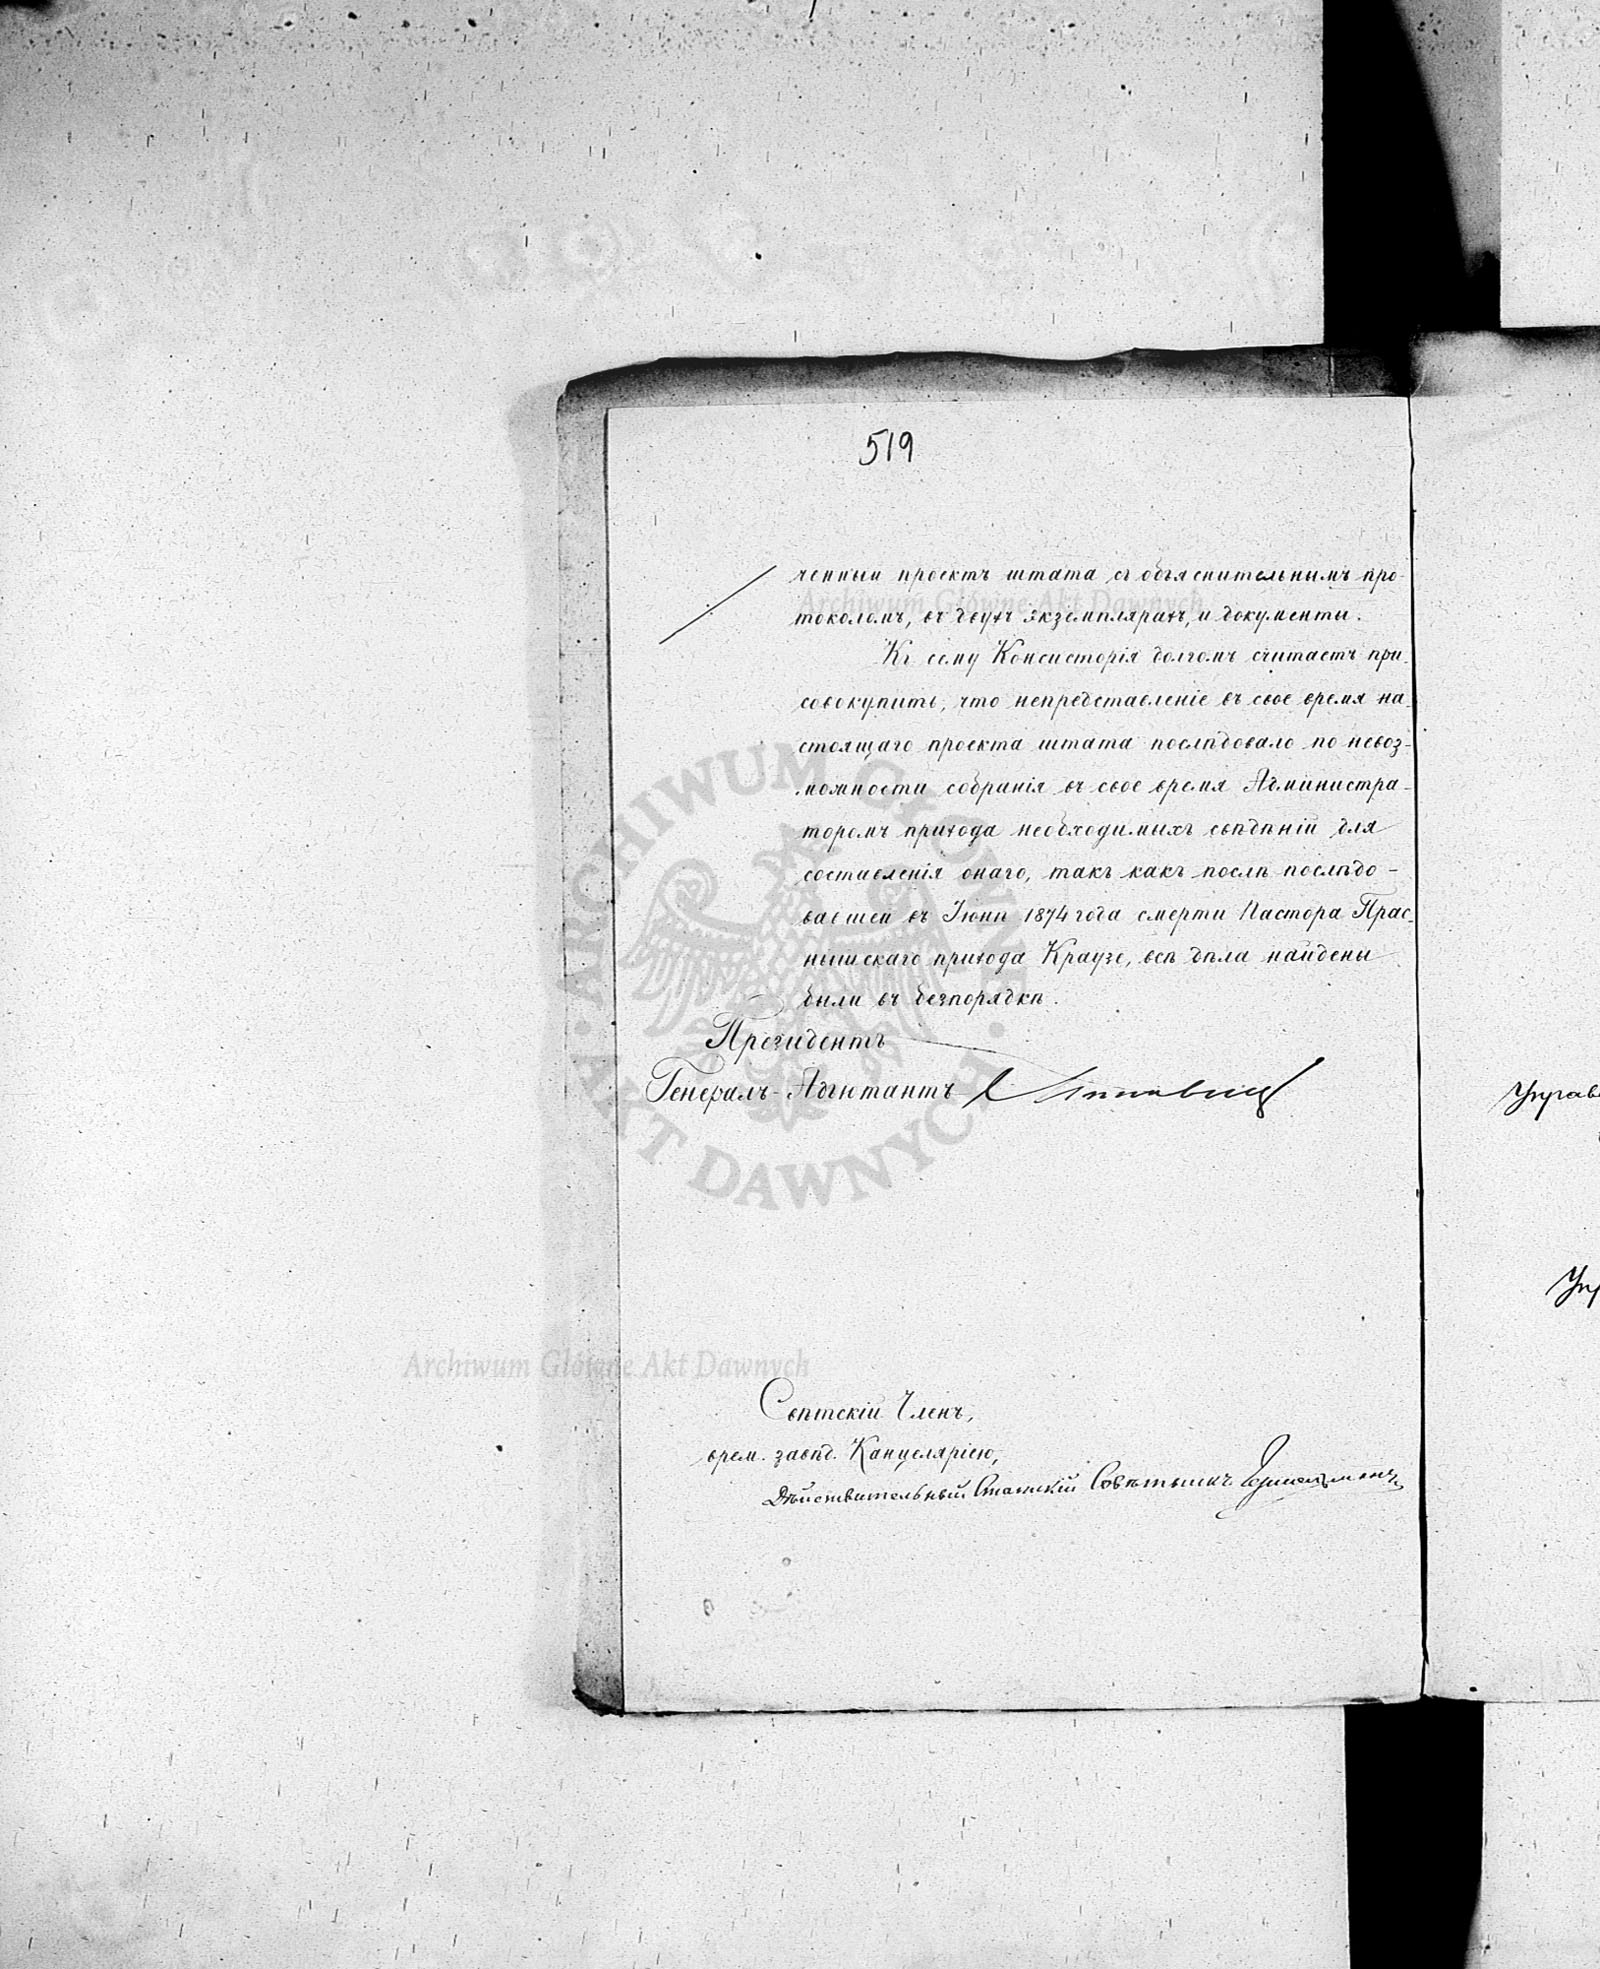 519
ченный проектъ штата съ объяснительнымъ про-
токоломъ, въ двухъ экземплярахъ, и документы.
Къ сему Консисторія долгомъ считаетъ при-
совокупить, что непредставленіе въ свое время на-
стоящаго проекта штата послѣдовало по невоз-
можности собранія въ свое время Администра-
торомъ прихода необходимыхъ свѣдѣній для
составленія онаго, такъ какъ послѣ послѣдо-
вавшей въ Іюнѣ 1874 года смерти Пастора Прас-
нышскаго прихода Краузе, всѣ дѣла найдены
были въ безпорядкѣ.
Президентъ
Генералъ-Адъютантъ
Свѣтскій Членъ,
врем. завѣд. Канцеляріею,
Дѣйствительный Статскій Совѣтникъ
Управ
Упр
Archiwum Główne Akt Dawnych
Archiwum Główne Akt Dawnych
ARCHIWUM GŁÓWNE AKT DAWNYCH